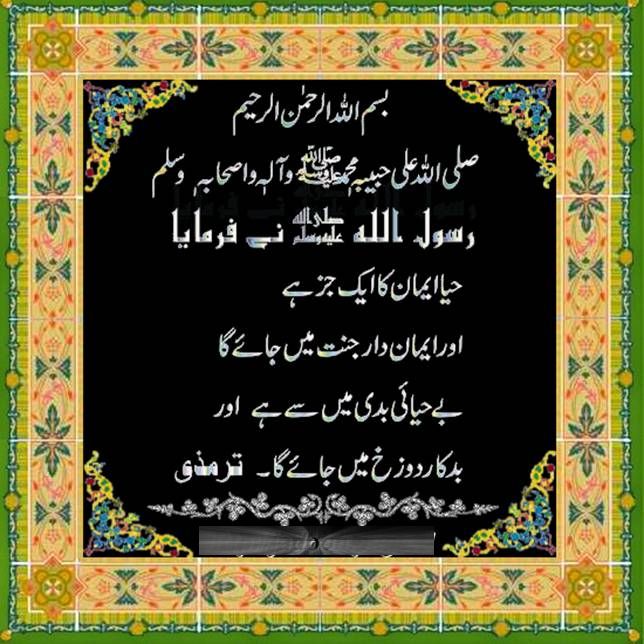 بسم اللہ الرحمٰن الرحیم
صلی اللہ علی حبیبہٖ محمد ﷺ وآلہٖ واصحابہٖ وسلم
رسول اللہ ﷺ نے فرمایا
حیا ایمان کا ایک جز ہے
اور ایمان دار جنت میں جائے گا
بے حیائی بدی میں سے ہے اور
بدکار دوزخ میں جائے گا۔ ترمذی